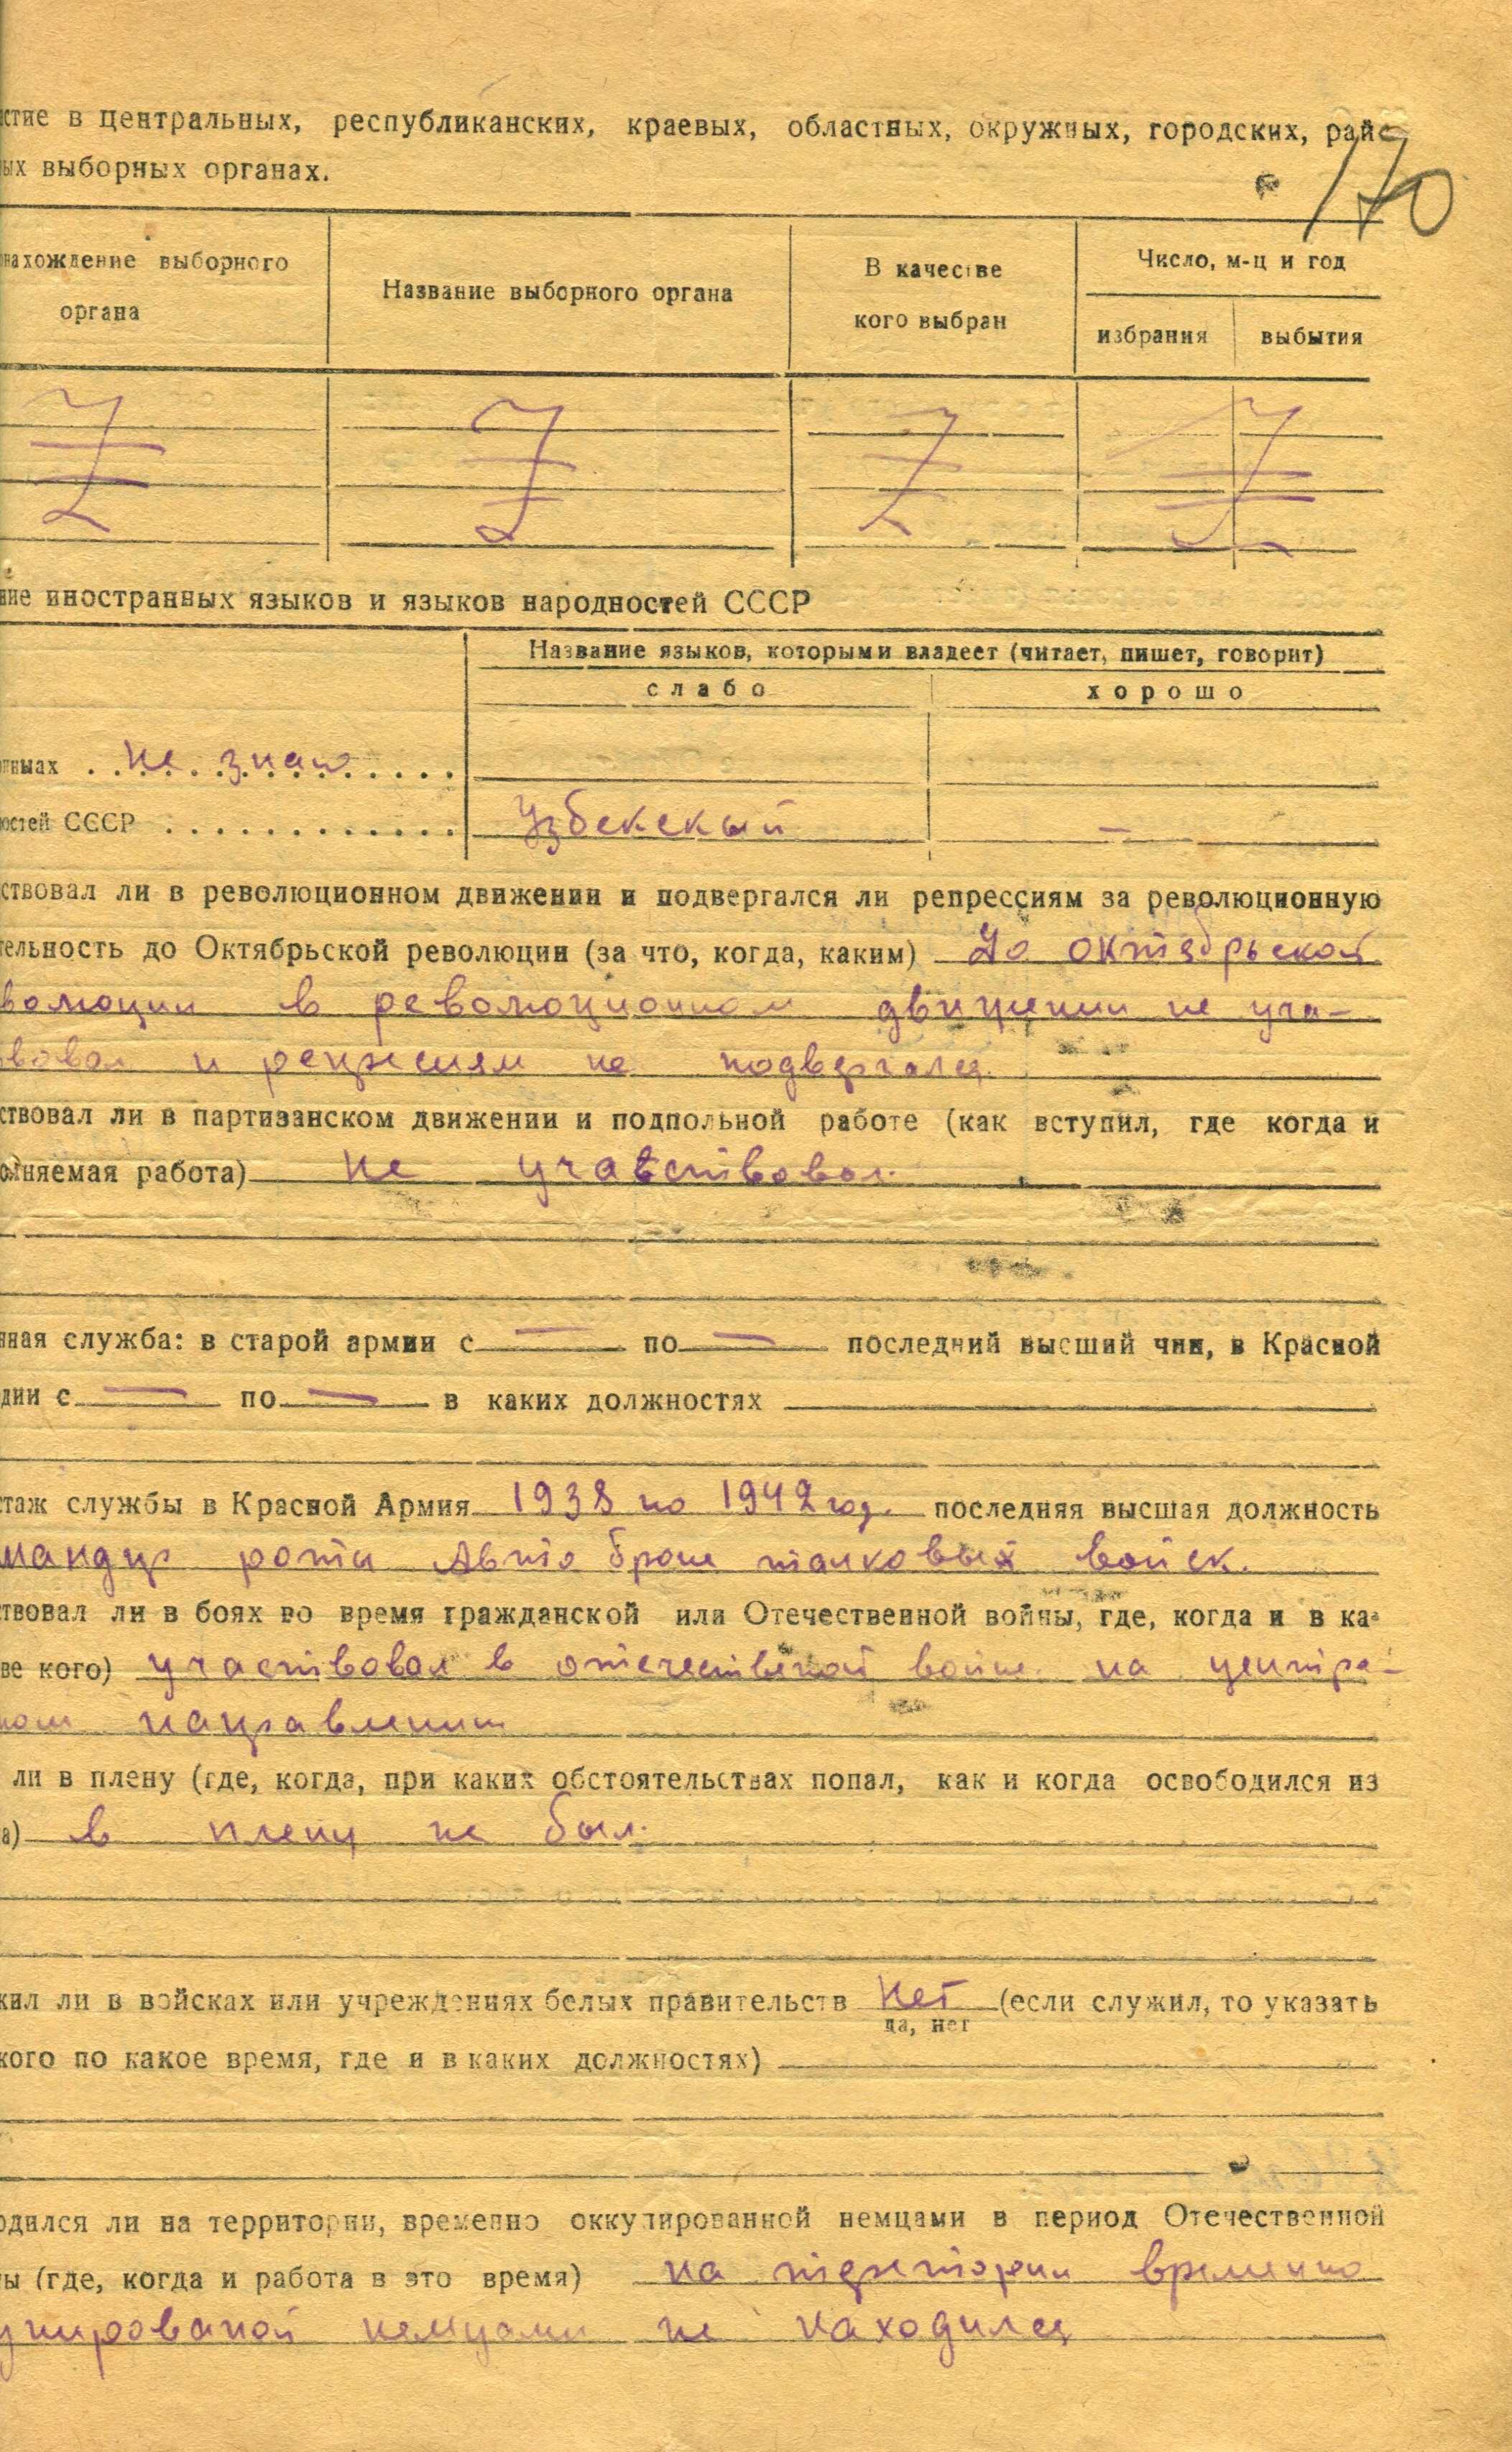 стие в центральных, республиканских, краевых, областных, окружных, городских, райо
ых выборных органах.
170
нахождение выборного органа
Название выборного органа
В качестве кого выбран
Число, м-ц и год
избрания выбытия
ние иностранных языков и языков народностей СССР
Название языков, которыми владеет (читает, пишет, говорит)
слабо хорошо
нныах . . не знаю . . . .
остей СССР . . . . . . . . . . . . Узбекский —
ствовал ли в революционном движении и подвергался ли репрессиям за революционную
тельность до Октябрьской революции (за что, когда, каким) До октябрьской
волюции в революционном движении не уча-
вовал и репресиям не подвергался.
ствовал ли в партизанском движении и подпольной работе (как вступил, где когда и
олняемая работа) не участвовал.
нная служба: в старой армии с — по — последний высший чин, в Красной
дии с — по — в каких должностях
таж службы в Красной Армия 1938 по 1942 год. последняя высшая должность
мандир роты Авто броне танковых войск.
твовал ли в боях во время гражданской или Отечественной войны, где, когда и в ка-
ве кого) участвовал в отечественой войне на центра-
ном направлении
ли в плену (где, когда, при каких обстоятельствах попал, как и когда освободился из
а) в плену не был.
жил ли в войсках или учреждениях белых правительств Нет (если служил, то указать
да, нет
кого по какое время, где и в каких должностях)
одился ли на территории, временно оккупированной немцами в период Отечественной
ы (где, когда и работа в это время) на территории временно
упированой немцами не находился